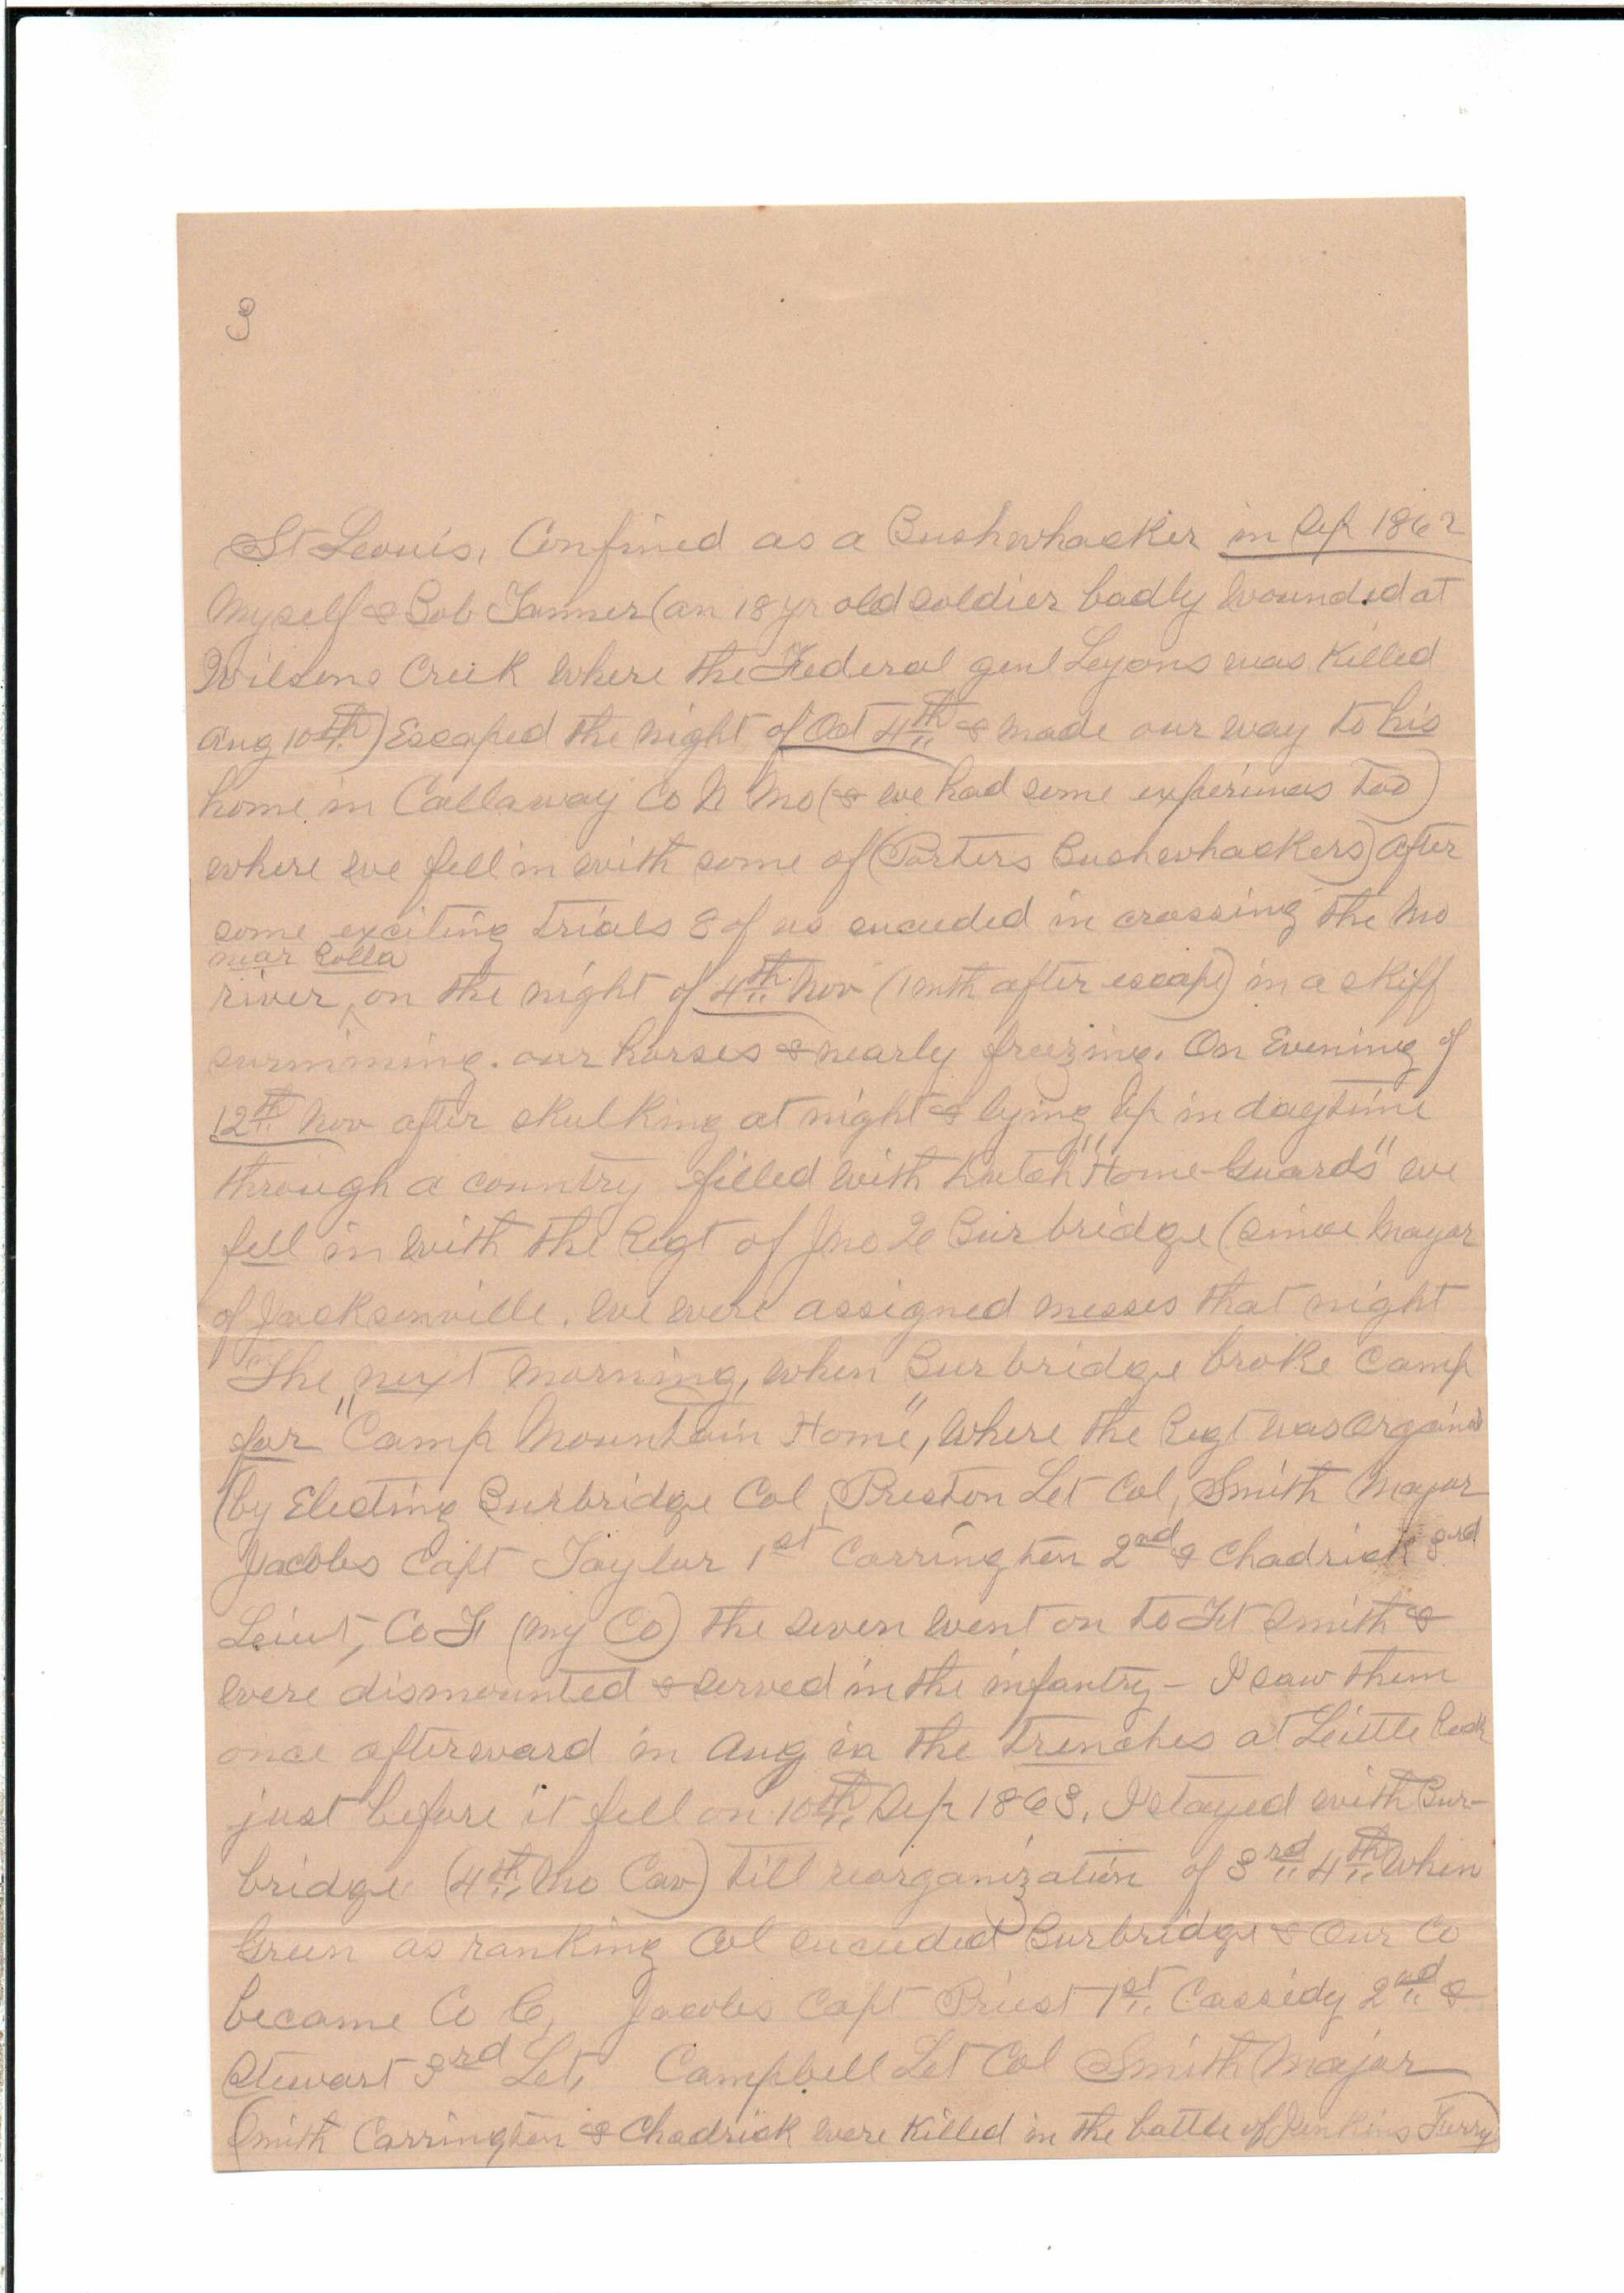 3
St Louis, Confined as a Bushwhacker in Sep 1862
Myself & Bob Tanner (an 18 yr old soldier badly wounded at
Wilsons Creek where the Federal genl Leyons was Killed
Aug 10th) Escaped the night of Oct 4th & made our way to his
home in Callaway Co N Mo (& we had some experinces too)
where we fell in with some of (Porters Bushwhackers) after
some exciting trials 8 of us succeded in crossing the Mo
near Rolla
river, on the night of 4th Nov (1 mth after escape) in a skiff
swimming our horses & nearly freezing. On Evening of
12th Nov after skulking at night & lying up in daytime
through a country filled with Dutch "Home-Guards" we
fell in with the Regt of Jno Q Burbridge (since Mayor
of Jacksonville. We were assigned messes that night
The next morning, when Burbridge broke camp
for "Camp Mountain Home", where the Regt was
(by Electing Burbridge Col, Preston Let Col, Smith Major
Jacobs Capt Taylor 1st Carrington 2nd & Chadrick 3rd
Leiut, Co F (my Co) the seven went on to Ft Smith &
were dismounted & served in the infantry - I saw them
once afterward in Aug in the trenches at Leittle Rock
just before it fell on 10th Sep 1863, I stayed with Bur-
bridge (4th Mo Cav) till reorganization of 3rd 4th when
Green as ranking Col succeded Burbridge & Our Co
became Co C, Jacobs Capt Priest 1st Cassidy 2nd &
Stewart 3rd Let, Campbell Let Col Smith Major
(Smith Carrington & Chadrick were Killed in the battle of Jenkins Furry)